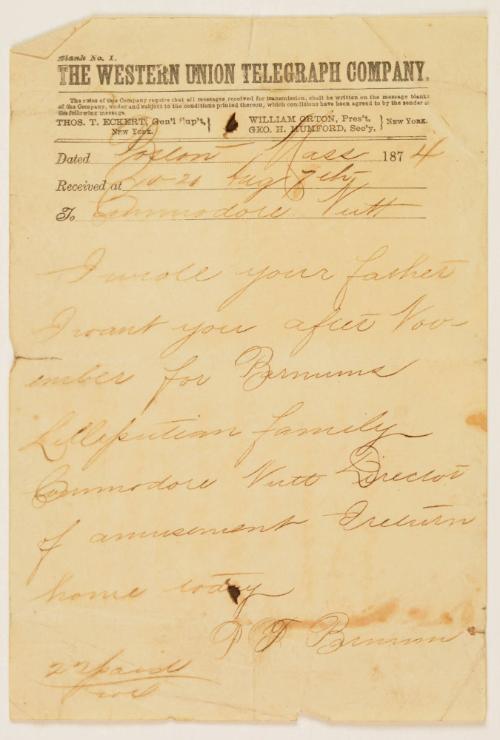 Blank No. 1.
THE WESTERN UNION TELEGRAPH COMPANY.
The rules of this Company require that all messages received for transmission, shall be written on the message blanks
of the Company, under and subject to the conditions printed thereon, which conditions have been agreed to by the sender of
the following message.
THOS. T. ECKERT, Gen'l Sup't, New York. WILLIAM ORTON, Pres't, GEO. H. MUMFORD, Sec'y, New York.
Dated Boston Mass 1874
Received at 10-20 Aug 7th
To Commodore Nutt
I wrote your father
I want you after Nov-
ember for Bernums
Lilleputian family
Commodore Nutt Director
of amusement I return
home today
P T Bernum
22 paid